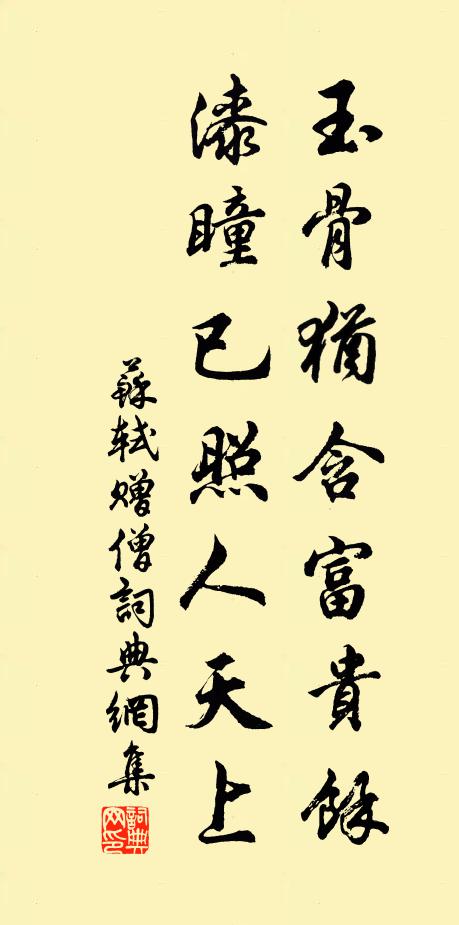 玉骨猶含富貴餘
漆瞳已照人天上
蘇軾贈僧詞典網集
詞典网印